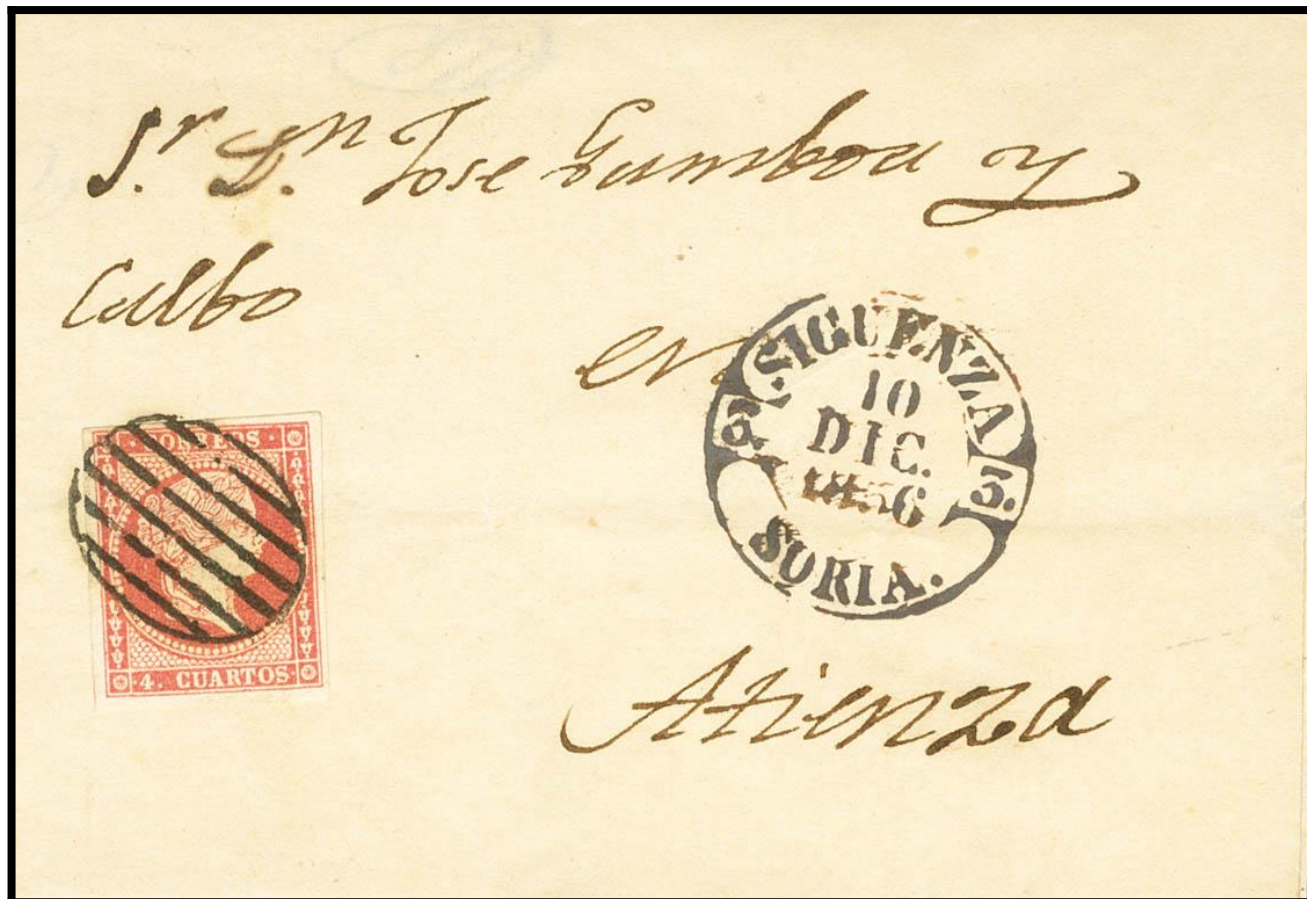 S.r D.n Jose Gamboa y
Calbo
en
.SIGUENZA
10
DIC.
1856
SORIA.
Atienza
CORREOS
4. CUARTOS